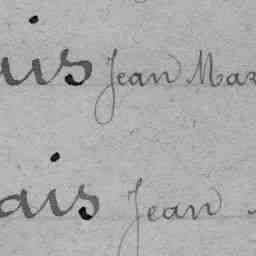 ais Jean Mar
ais Jean